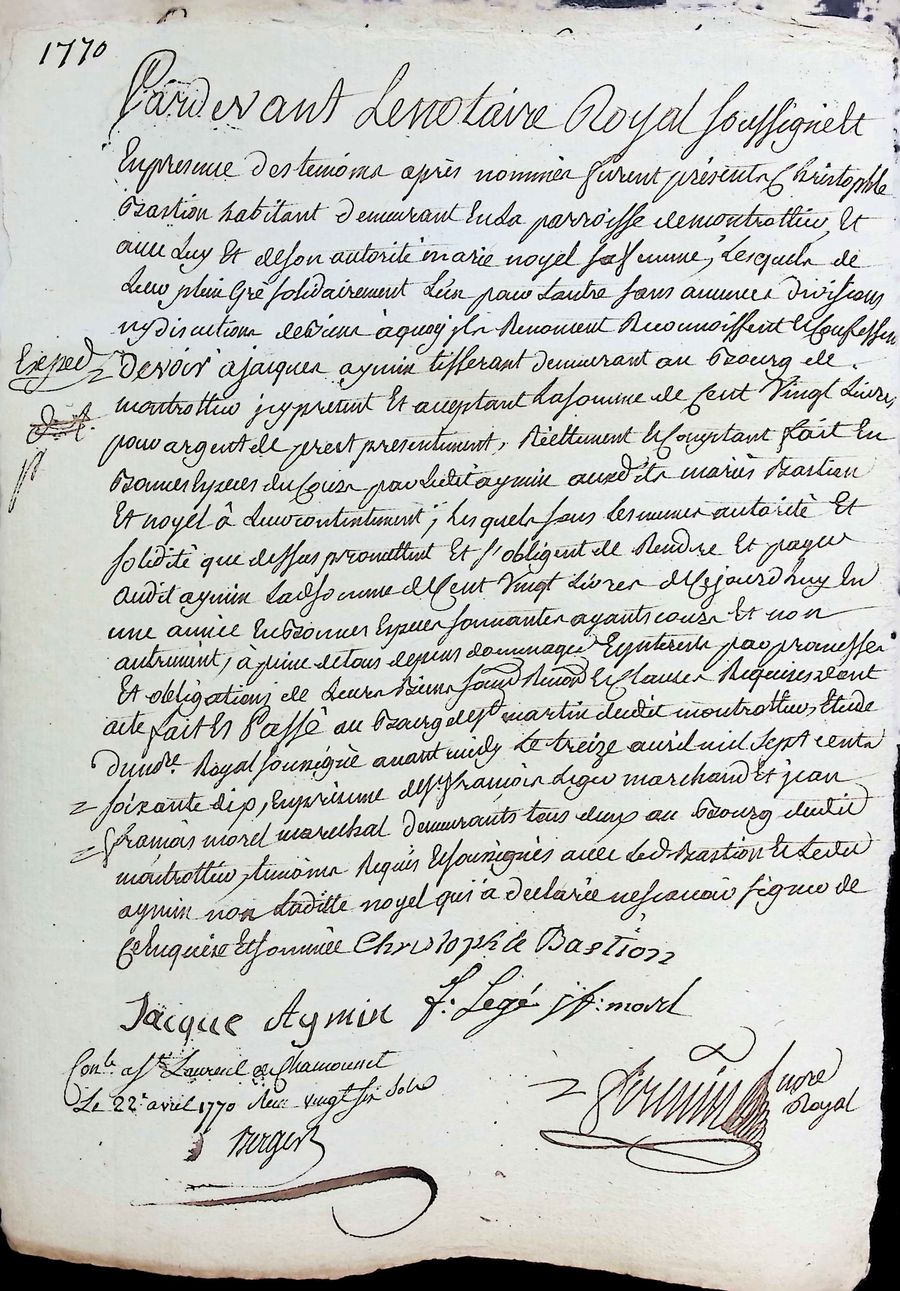 1770
Pardevant Le notaire Royal soussigné Et
En presence des temoins après nommés furent présents Christophle
Bastion habitant demeurant En La parroisse de montrottier, Et
avec Luy Et de son autorité marie noyel sa femme, Lesquels de
Leur plein Gré solidairement L'un pour L'autre sans aucunes divisions
ny discutions de Biens à quoy ils Renoncent Reconnoissent Et Confessent
Exped
Devoir a jacques aymin tisserant demeurant au Bourg de
montrottier jcy present Et acceptant La somme de Cent Vingt Livres,
pour argent de prest presentement, Réellement Et Comptant fait En
Bonnes Especes du Cours par Ledit aymin auxdits mariés Bastion
Et noyel à Leur contentement; Lesquels sous Les memes autorité Et
solidité que dessus promettent Et s'obligent de Rendre Et payer
audit aymin Ladite somme de Cent Vingt Livres de Cejourd'huy En
une année En Bonnes Especes sonnantes ayants cours Et non
autrement, à peine de tous depens dommages Et jnterets par promesses
Et obligations de Leurs Biens soub Renon Et Clauses Requises dont
acte fait Et Passé au Bourg de St martin dudit montrottier, Etude
Dudit nre. Royal soussigné avant midy Le treize avril mil sept cents
soixante dix, En presence de Sr. françois Leger marchand Et jean
françois morel marechal demeurants tous deux au Bourg dudit
montrottier, temoins Requis Et soussignés avec Led. Bastion Et Ledit
aymin non Laditte noyel qui a declarée ne scavoir signer de
Ce Enquise Et sommée Christophle Bastion
Jacque Aymin f: Legé jf: morel
Con.le a St. Laurent de Chamousset
Le 22.e avril 1770 Reçu vingt six sols
Berger
nore
Royal